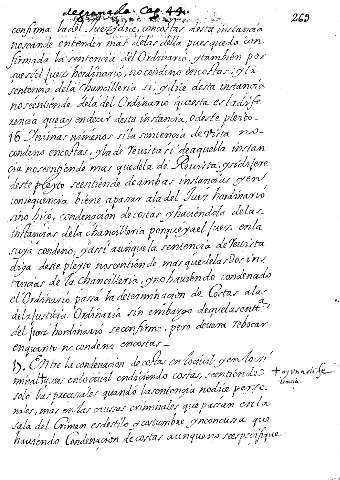 de granada. Cap. 49. 269
confirma la del Juez, dize, con costas desta instancia
no se an de entender mas delas della pues quedo con
firmada la sentencia del Ordinario, y tambien por
que el Juez hordinario, no condeno en costas, y la
sentencia dela Chancilleria si, y dize desta instancia
no se entiende dela del Ordinario que esta es la dife
rencia que ay en dezir desta instancia, o deste pleito.
16. Ittem mas notemos si la sentencia de vista no
condeno en costas, y la de Revista si de aquella instan
cia no se entiende mas que dela de Revista, y si dixere
deste pleyto se entiende de ambas instancias y en
consequencia biene a pasar ala del Juez hordinario
sino hizo, condenacion de costas y haciendola de las
instancias dela chancilleria porque ya el Juez en la
suya condeno, y assi aunque la sentencia de Revista
diga deste pleyto no se entiende mas que delas dos ins
tancias de la Chancilleria, y no haviendo condenado
el Ordinario passa la determinacion de Costas ala
dela Justicia Ordinaria sin embargo de que la sentª
del Juez hordinario se confirme, pero deve revocar
en quanto no condeno en costas—
17. Entre la condenacion de costas en lo civil y en lo cri
minal + que en lo civil en diciendo con costas, se entiende
+ ay una dife
rencia.
solo las procesales quando la sentencia no dice perso
nales, mas en las causas criminales que passan en la
sala del Crimen es de stilo y costumbre y no concusa que
haviendo Condenacion de costas aunque no se especifique